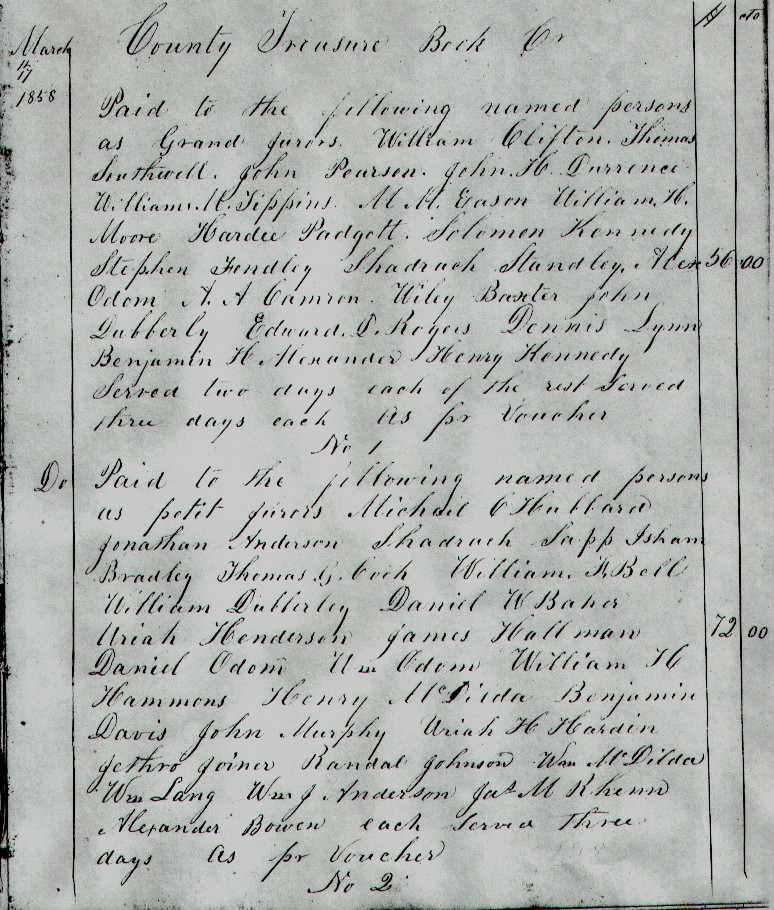 County Treasure Book Cr $ cts
March
17
1858
Paid to the following named persons
as Grand jurors. William Clifton. Thomas
Southwell. John Pearson. John. H. Durrence
William. M. Tippins. M. M. Eason William. H.
Moore Hardee Padgett. Solomon Kennedy
Stephen Fendley Shadrach Standley, Alex 56 00
Odom A. A Camron. Wiley Baxter John
Dubberly Edward. D. Rogers Dennis Lynn
Benjamin H. Alexander Henry Kennedy
Served two days each of the rest Served
three days each As pr Voucher
No 1
Do Paid to the following named persons
as petit jurors Michael C Hubbard
Jonathan Anderson Shadrach Sapp Isham
Bradley Thomas G. Cook William. F. Bell
William Dubberley Daniel W Baker
Uriah Henderson James Hallman 72 00
Daniel Odom Wm Odom William H
Hammons Henry McDilda Benjamin
Davis John Murphy Uriah H Hardin
Jethro Joiner Randal Johnson Wm McDilda
Wm Lang Wm J Anderson Jas M Rhenn
Alexander Bowen each Served three
days As pr Voucher
No 2